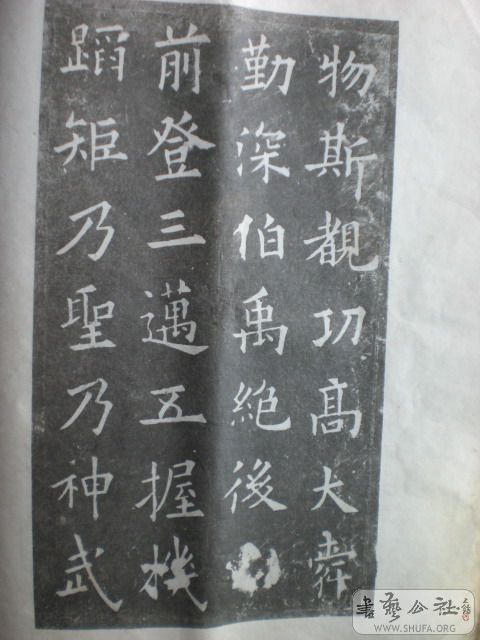 物斯覩功髙大舜
勤深伯禹絶後
前登三邁五握機
蹈矩乃聖乃神武
書藝公社
WWW.SHUFA.ORG